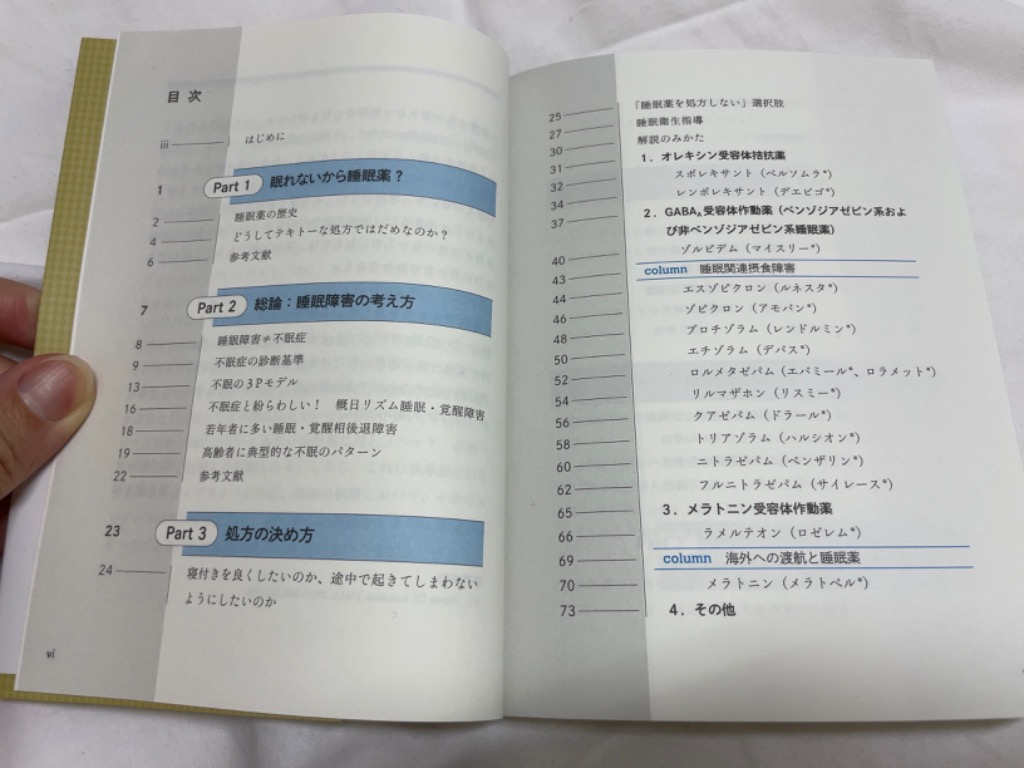 目次
iii はじめに
1 Part 1 眠れないから睡眠薬?
2 睡眠薬の歴史
4 どうしてテキトーな処方ではだめなのか?
6 参考文献
7 Part 2 総論：睡眠障害の考え方
8 睡眠障害≠不眠症
9 不眠症の診断基準
13 不眠の3Pモデル
16 不眠症と紛らわしい! 概日リズム睡眠・覚醒障害
18 若年者に多い睡眠・覚醒相後退障害
19 高齢者に典型的な不眠のパターン
22 参考文献
23 Part 3 処方の決め方
24 寝付きを良くしたいのか、途中で起きてしまわない
ようにしたいのか
vi
25 「睡眠薬を処方しない」選択肢
27 睡眠衛生指導
30 解説のみかた
31 1．オレキシン受容体拮抗薬
32 スボレキサント（ベルソムラ®）
34 レンボレキサント（デエビゴ®）
37 2．GABAA受容体作動薬（ベンゾジアゼピン系およ
び非ベンゾジアゼピン系睡眠薬）
40 ゾルピデム（マイスリー®）
43 column 睡眠関連摂食障害
44 エスゾピクロン（ルネスタ®）
46 ゾピクロン（アモバン®）
48 ブロチゾラム（レンドルミン®）
50 エチゾラム（デパス®）
52 ロルメタゼパム（エバミール®、ロラメット®）
54 リルマザホン（リスミー®）
56 クアゼパム（ドラール®）
58 トリアゾラム（ハルシオン®）
60 ニトラゼパム（ベンザリン®）
62 フルニトラゼパム（サイレース®）
65 3．メラトニン受容体作動薬
66 ラメルテオン（ロゼレム®）
69 column 海外への渡航と睡眠薬
70 メラトニン（メラトベル®）
73 4．その他